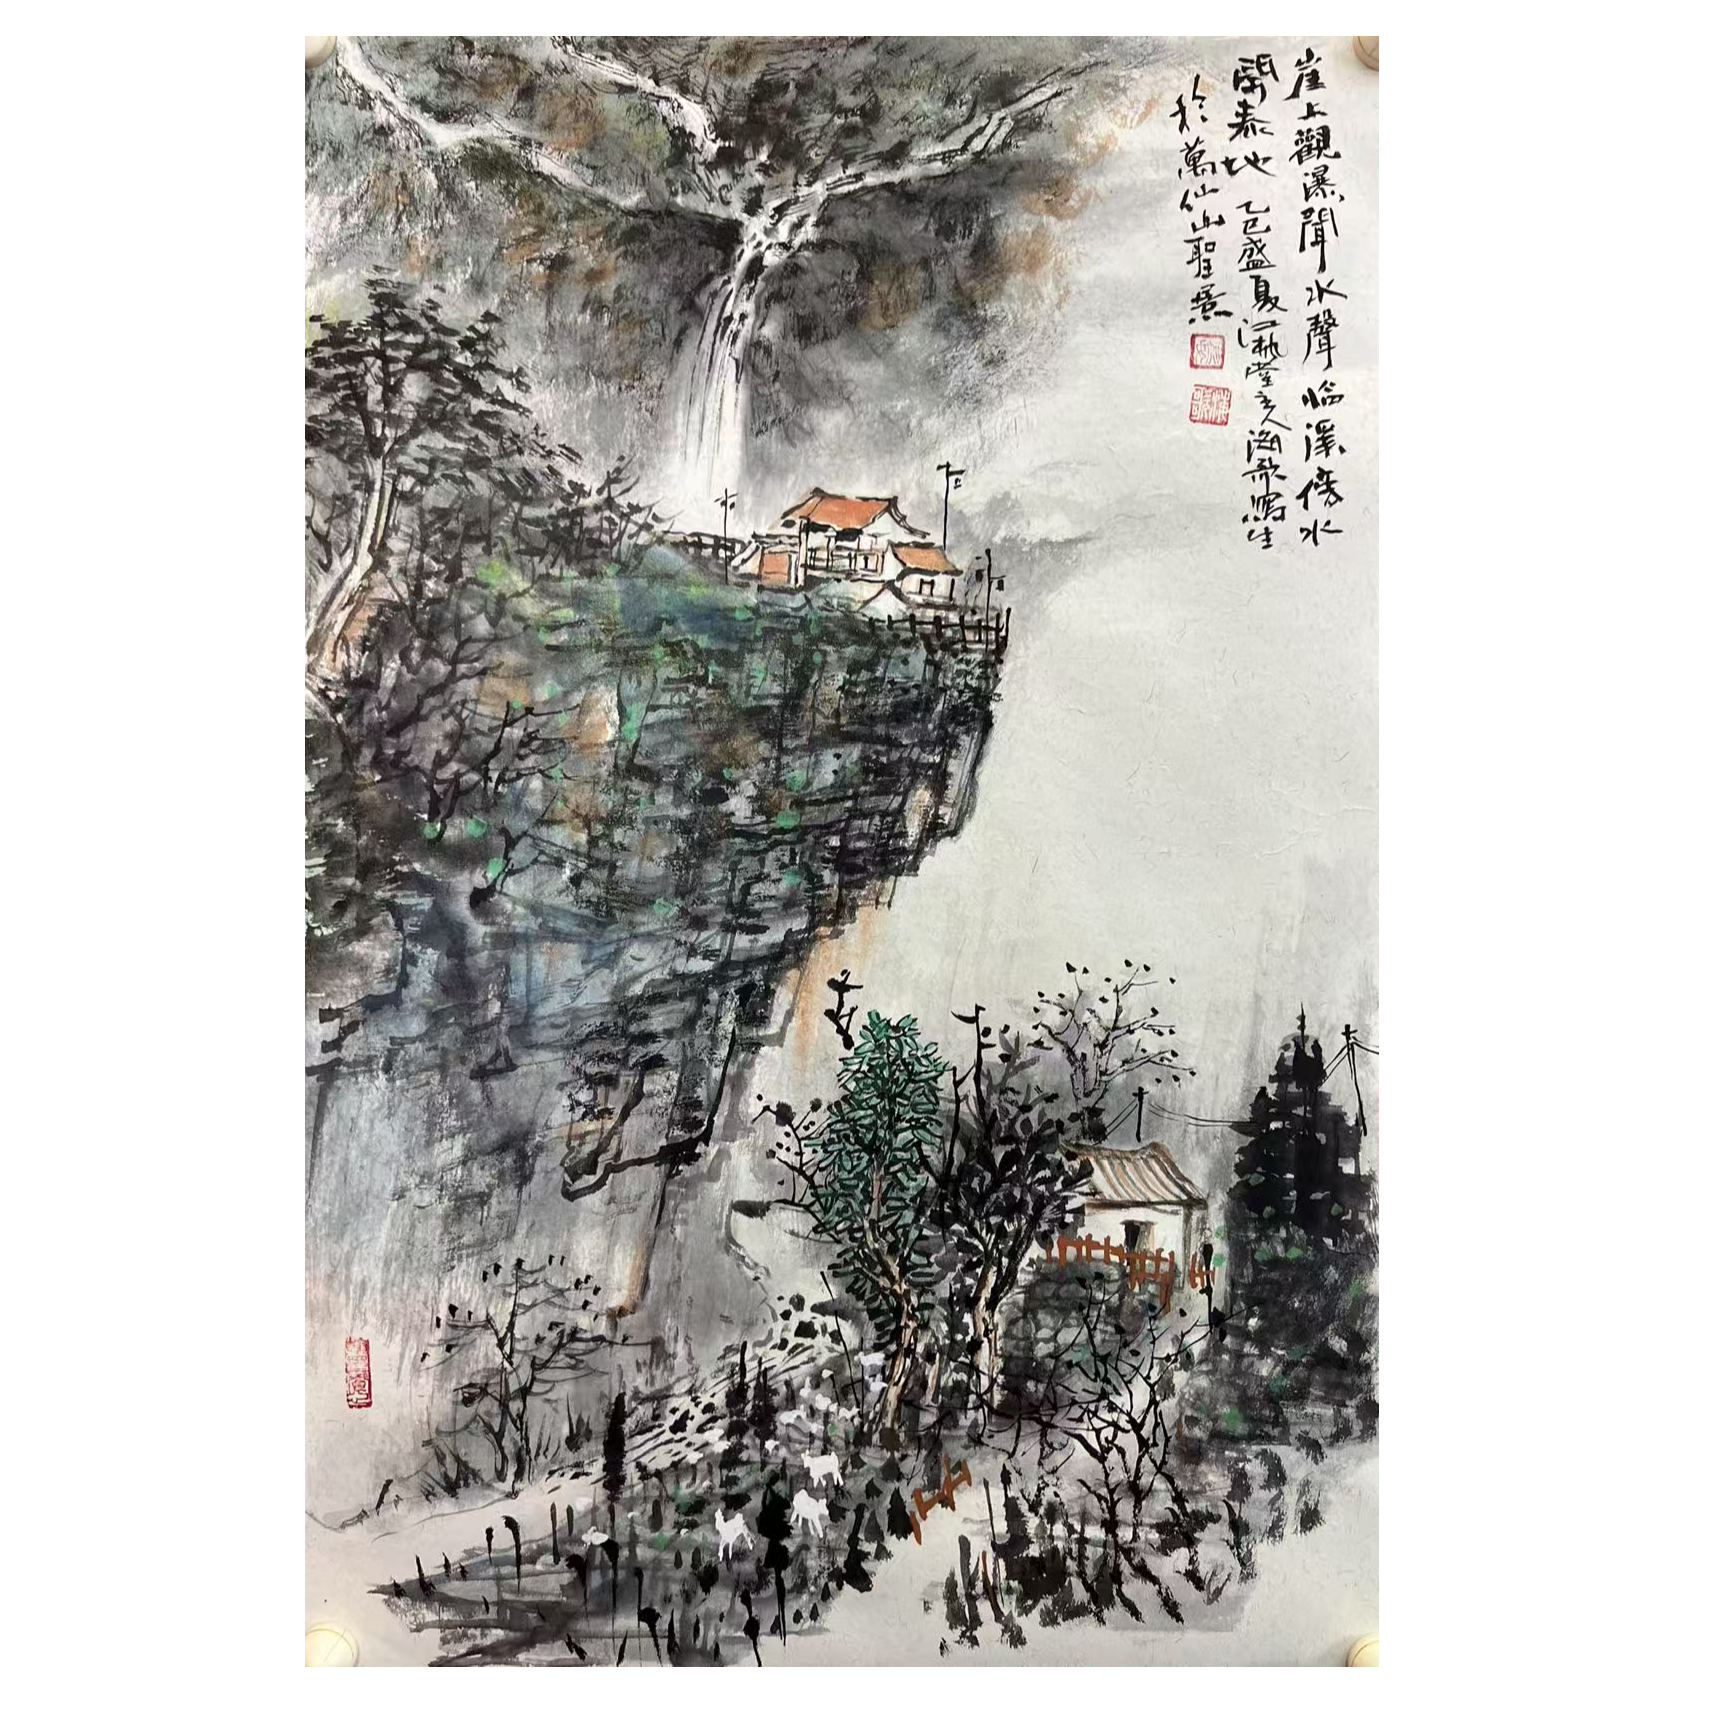 崖上觀瀑聞水聲臨溪傍水
聞泰地 乙巳盛夏江洮堂主人海歌寫生
於萬仙山聖景